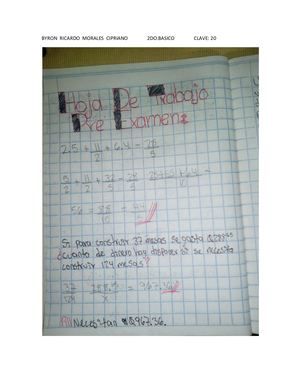 BYRON RICARDO MORALES CIPRIANO 2DO.BASICO CLAVE: 20
Hoja De Trabajo
Pre Examen
2.5 + 11/2 + 6.4 - 28/5
5/2 + 11/2 + 32/5 - 28/5
Si para construir 37 mesas se gasta
¿cuanto de dinero hay disponer si se necesita
construir 124 mesas?
37/124 = 967.36
R// Necesitan Q967.36.